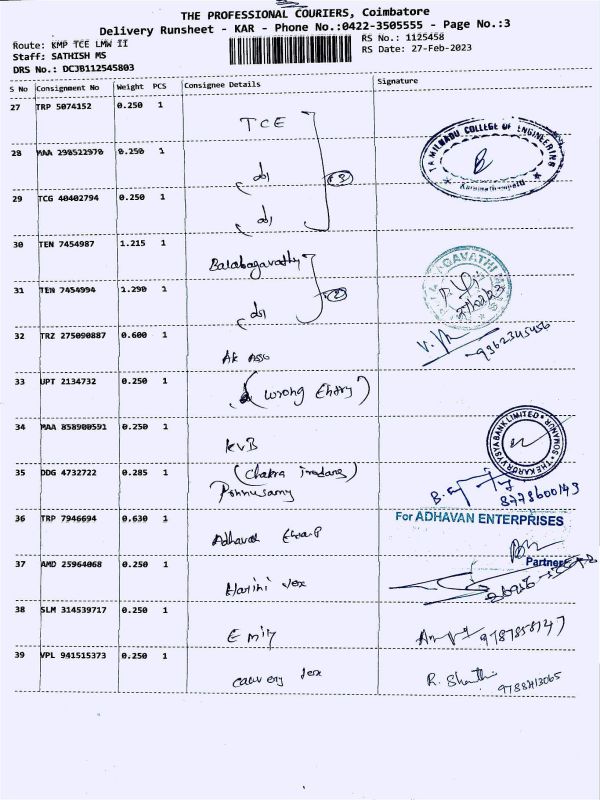 THE PROFESSIONAL COURIERS, Coimbatore
Delivery Runsheet - KAR - Phone No.:0422-3505555 - Page No.:3
Route: KMP TCE LMW II
Staff: SATHISH MS
DRS No.: DCJB112545803
RS No.: 1125458
RS Date: 27-Feb-2023
S No Consignment No Weight PCS Consignee Details Signature
27 TRP 5074152 0.250 1
TCE
TAMILNADU COLLEGE OF ENGINEERING
28 MAA 298522970 0.250 1
do
(3)
29 TCG 40402794 0.250 1
do
30 TEN 7454987 1.215 1
Balabagavathy
31 TEN 7454994 1.290 1
do
(2)
32 TRZ 275090887 0.600 1
AK Asso
9362345456
33 UPT 2134732 0.250 1
(wrong Entry)
34 MAA 858900591 0.250 1
KVB
THE KARUR VYSYA BANK LIMITED
SOMANUR
35 DDG 4732722 0.285 1
Ponnusamy
8778600143
36 TRP 7946694 0.630 1
Adhavan
For ADHAVAN ENTERPRISES
Partner
37 AMD 25964068 0.250 1
Harini Tex
38 SLM 314539717 0.250 1
Emily
9787858747
39 VPL 941515373 0.250 1
Cauvery Tex
R. Shanthi
9788413065